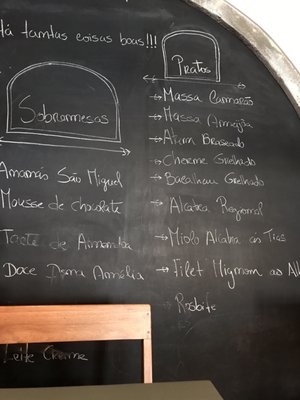 Há tantas coisas boas!!!
Sobremesas
Ananás São Miguel
Mousse de chocolate
Tarte de Amêndoa
Doce Dona Amélia
Leite Creme
Pratos
→ Massa Camarão
→ Massa Amêijoa
→ Atum Braseado
→ Cherne Grelhado
→ Bacalhau Grelhado
→ Alcatra Regional
→ Miolo Alcatra às Tias
→ Filet Mignon ao
→ Rosbife